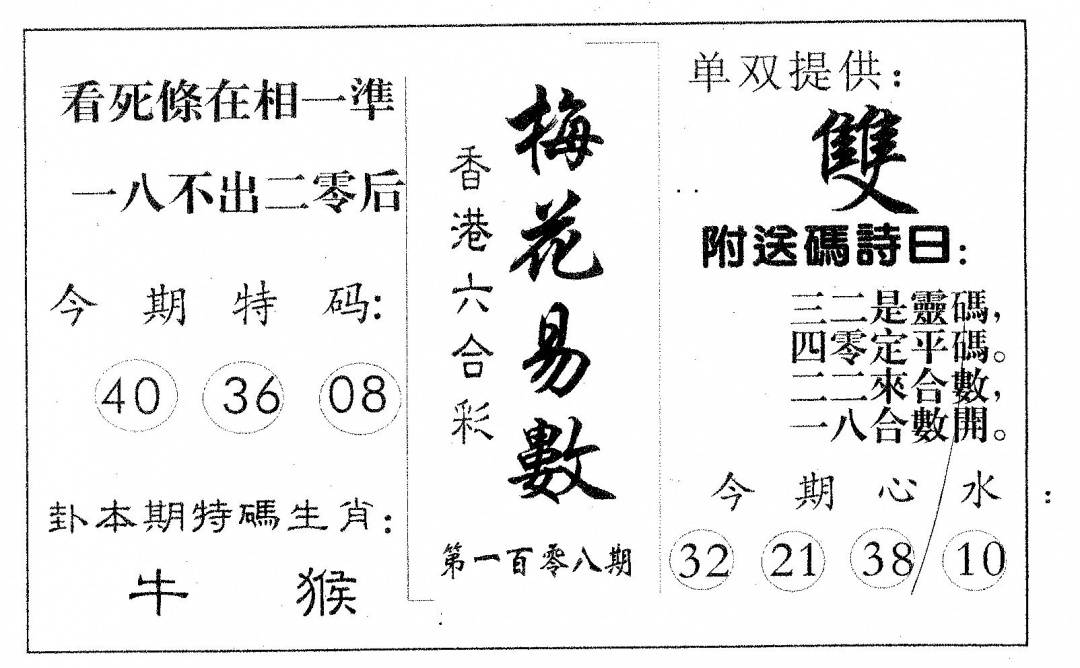 看死條在相一準
一八不出二零后
今期特码:
40 36 08
卦本期特碼生肖:
牛 猴
梅花易數
香港六合彩
第一百零八期
单双提供:
雙
附送碼詩曰:
三二是靈碼,
四零定平碼。
二二來合數,
一八合數開。
今期心水:
32 21 38 10